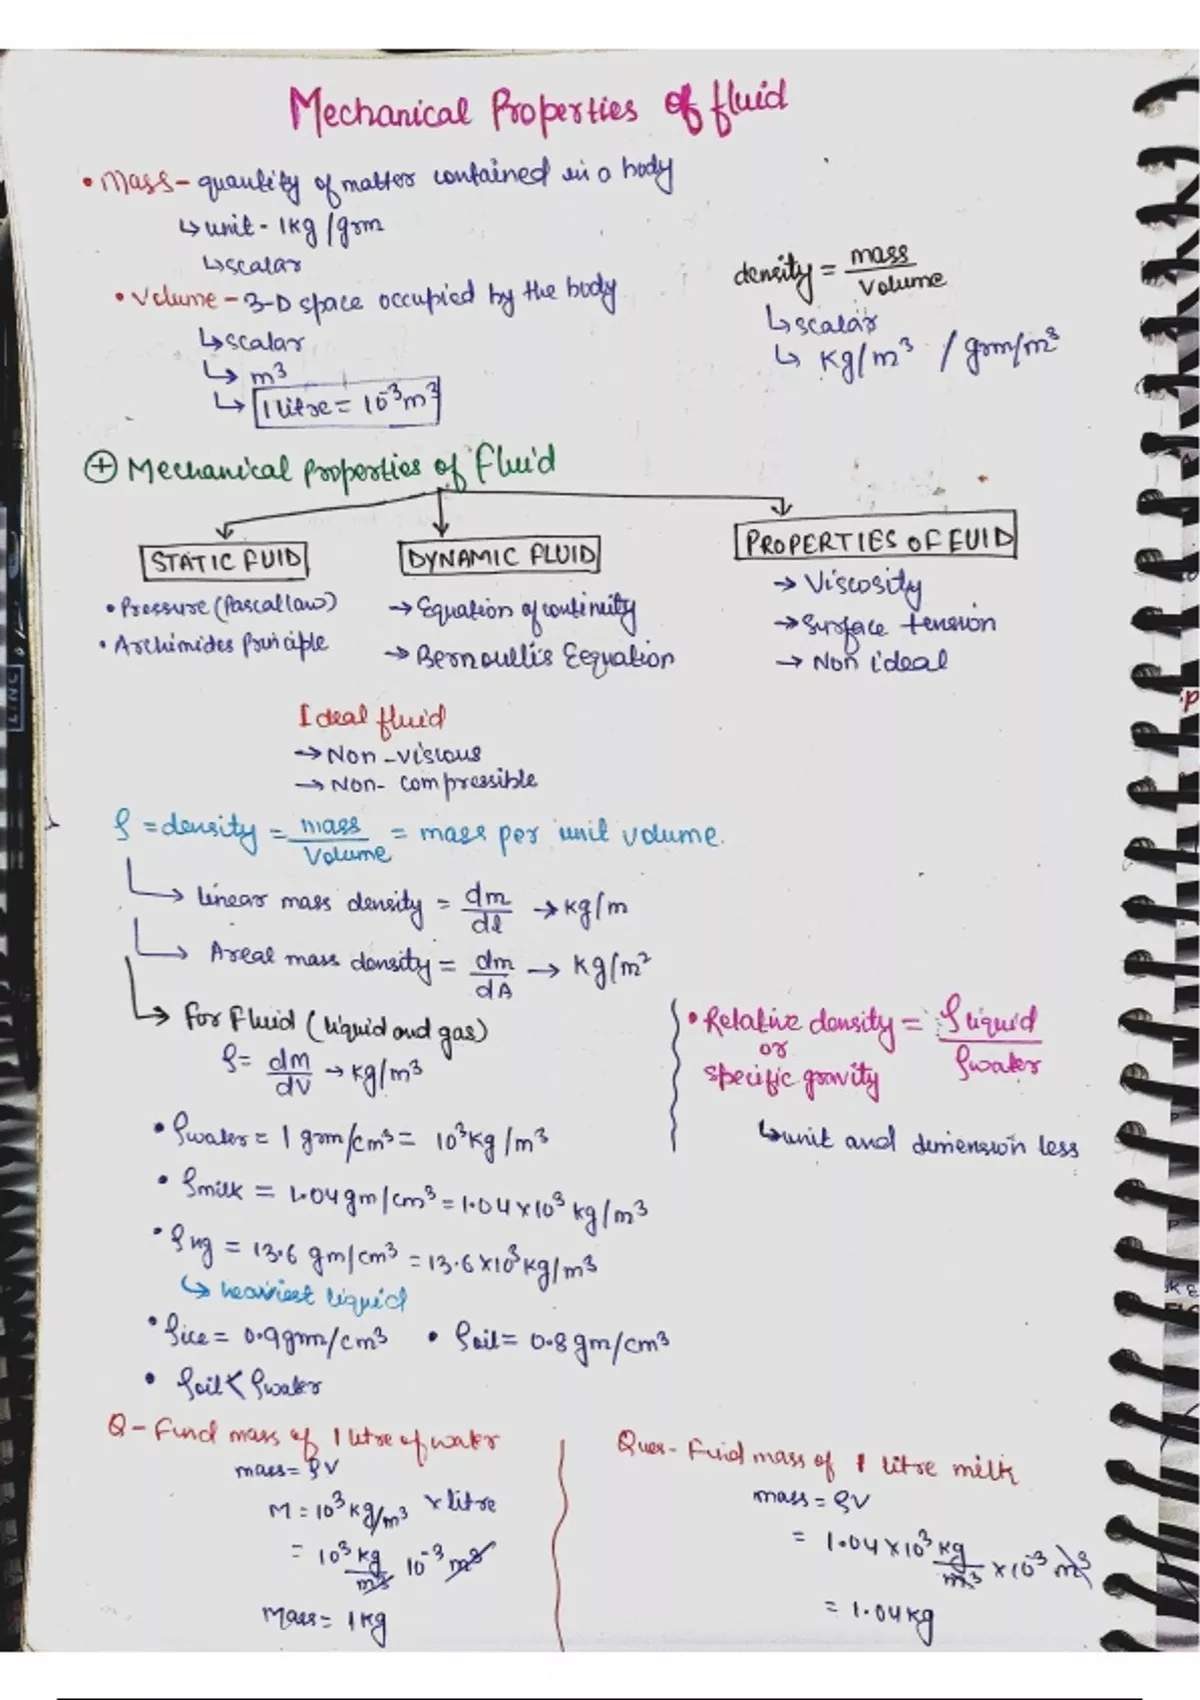 Mechanical Properties of fluid
• Mass - quantity of matter contained in a body
↳ unit - 1kg/grm
↳ scalar
• Volume - 3-D space occupied by the body
↳ scalar
↳ m³
↳ 1 litre = 10⁻³m³
density = mass/volume
↳ scalar
↳ kg/m³ / grm/m³
⊕ Mechanical properties of Fluid
STATIC FUID
• Pressure (Pascal law)
• Archimides principle
DYNAMIC FLUID
→ Equation of continuity
→ Bernoulli's Eequation
PROPERTIES OF FUID
→ Viscosity
→ Surface tension
→ Non ideal
Ideal fluid
→ Non-viscous
→ Non-compressible
ρ = density = mass/Volume = mass per unit volume.
↳ linear mass density = dm/dl → kg/m
↳ Areal mass density = dm/dA → kg/m²
↳ for Fluid (liquid and gas)
ρ = dm/dV → kg/m³
• Relative density = ρliquid/ρwater
or
specific gravity
↳ unit and dimension less
• ρwater = 1 grm/cm³ = 10³kg/m³
• ρmilk = 1.04gm/cm³ = 1.04×10³ kg/m³
• ρHg = 13.6 gm/cm³ = 13.6×10³kg/m³
↳ heaviest liquid
• ρice = 0.9gmm/cm³ • ρoil = 0.8gm/cm³
• ρoil < ρwater
Q - Find mass of 1 litre of water
mass = ρV
M = 10³kg/m³ × litre
= 10³kg/m³ 10⁻³m³
Mass = 1kg
Ques - Find mass of 1 litre milk
mass = ρV
= 1.04×10³kg/m³ × 10⁻³ m³
= 1.04kg
LINC